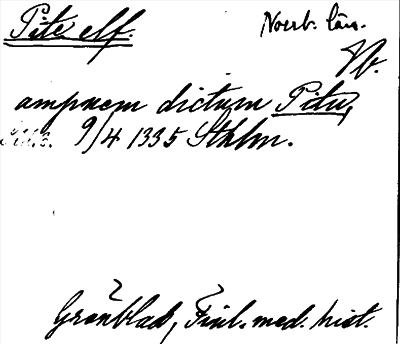 Pite elf. Norrb. län.
Vb.
ampnem dictum Pitu,
9/4 1335 Sthlm.
Grönblad, Finl. med. hist.